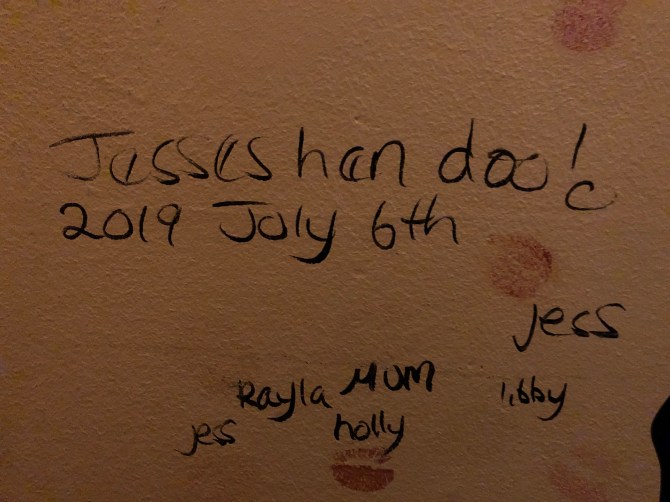 Jesses hen doo!
2019 July 6th
Jess
Rayla MUM libby
jess holly